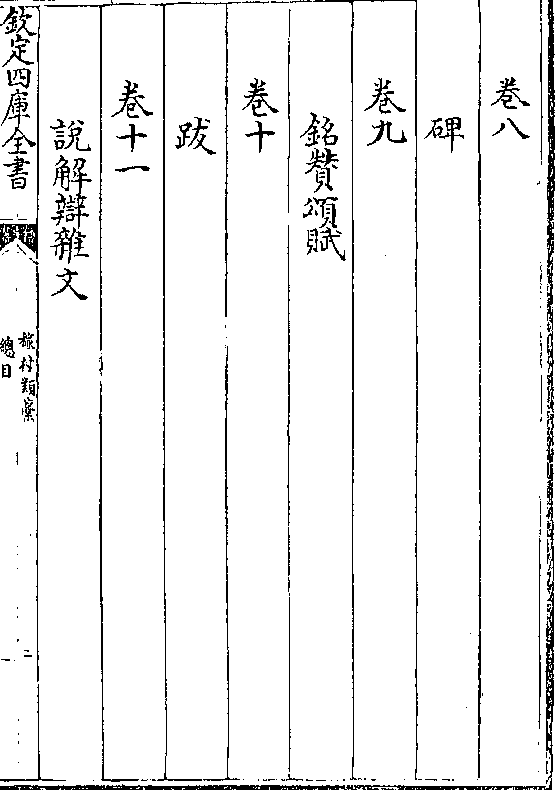 卷八
碑
卷九
銘贊頌賦
卷十
跋
卷十一
說解辯雜文
欽定四庫全書
村類藁
總目
二